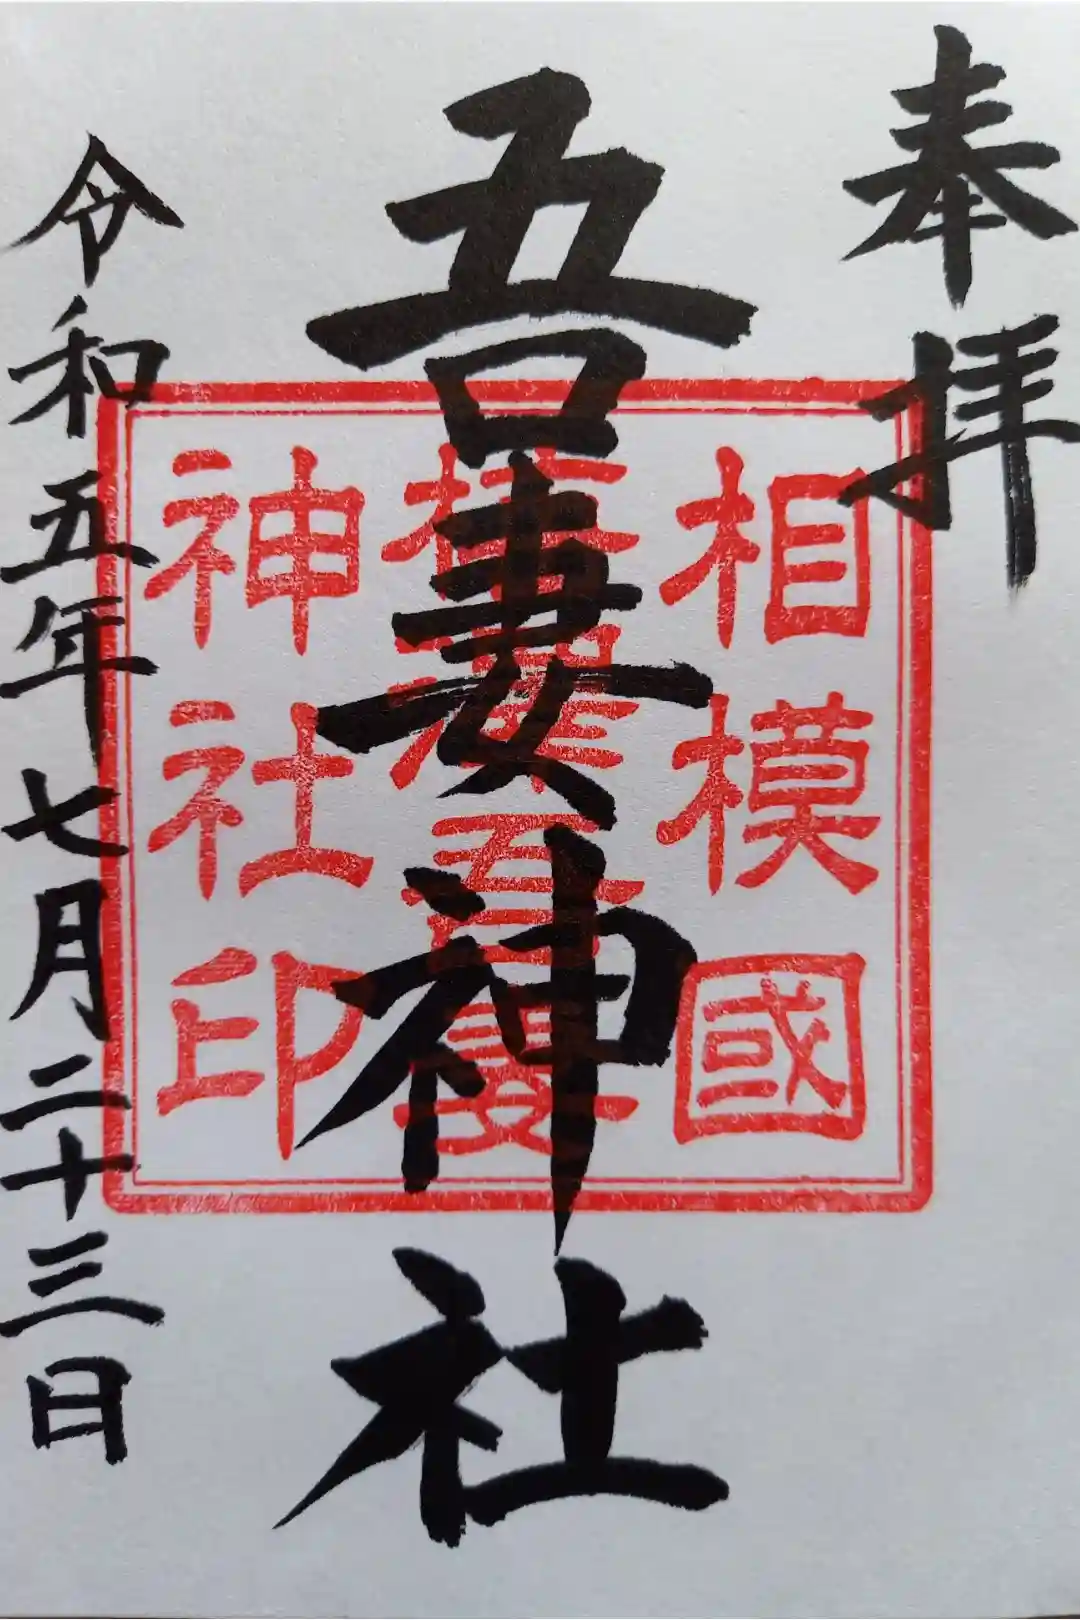 奉拝
吾妻神社
令和五年七月二十三日
相模國
梅澤吾妻
神社印